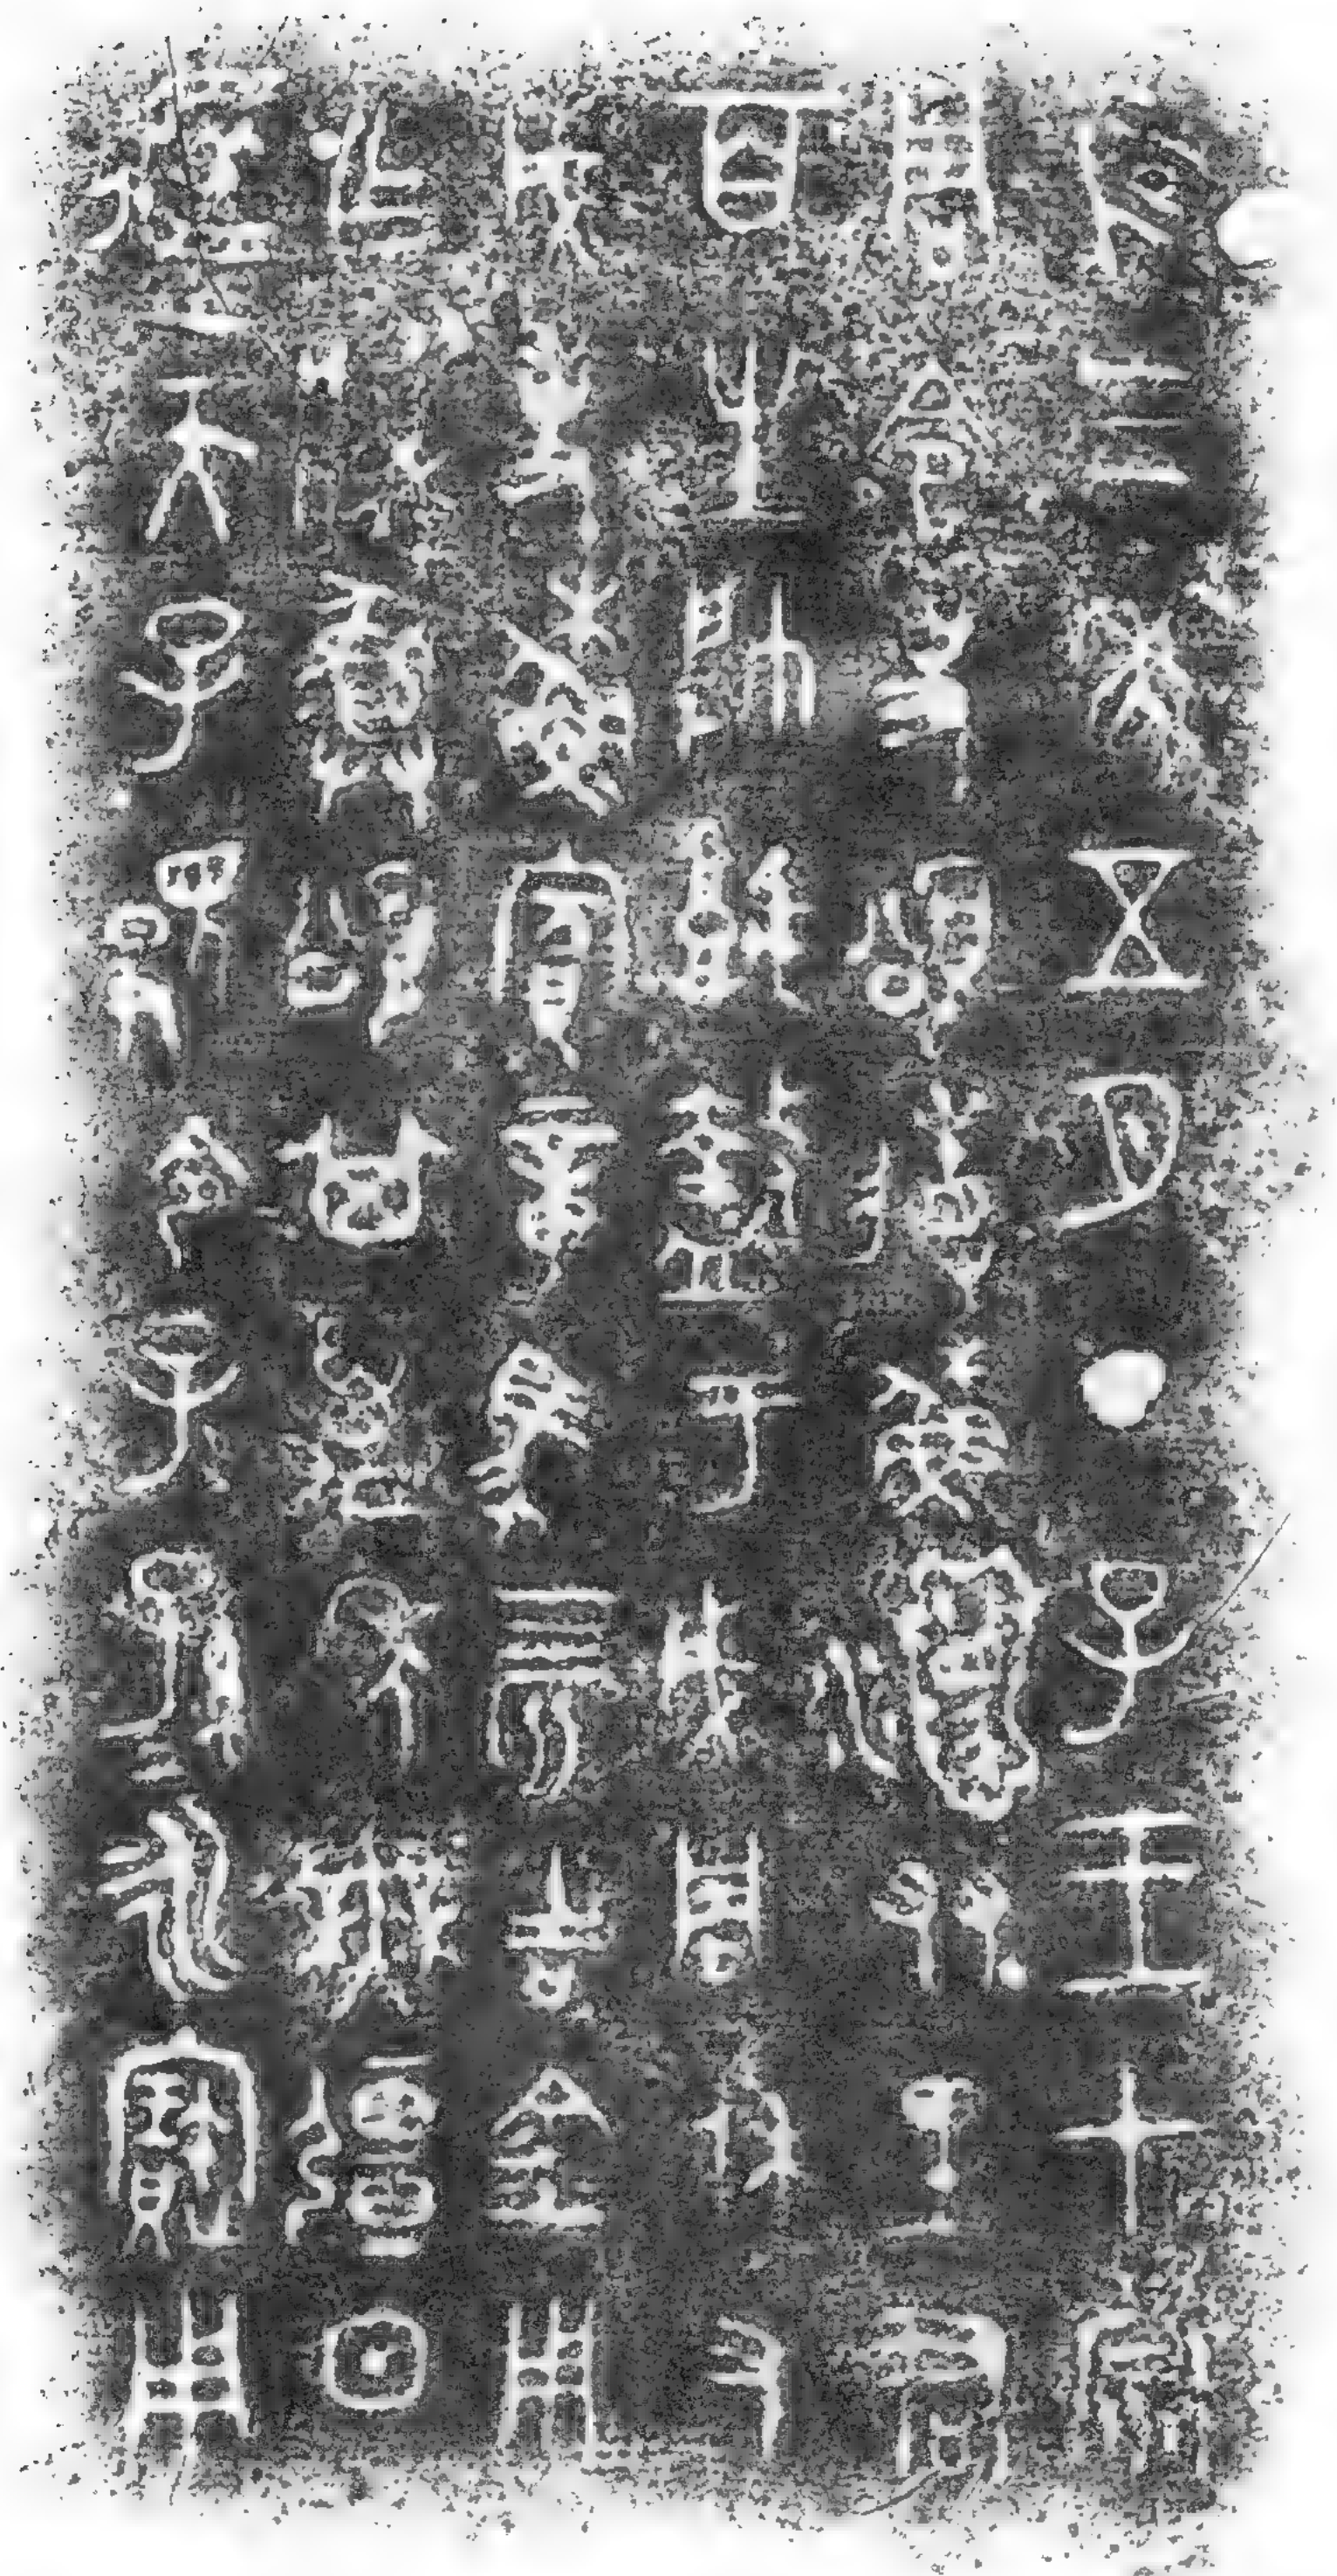 隹三年五月丁子王才宗
周令史頌省穌𤔲友里君
百生帥堣盩于成周休又
成事穌賓章馬四匹吉金用
乍䵼彝頌其萬年無疆日
遟天子䫑令子=孫=永寶用